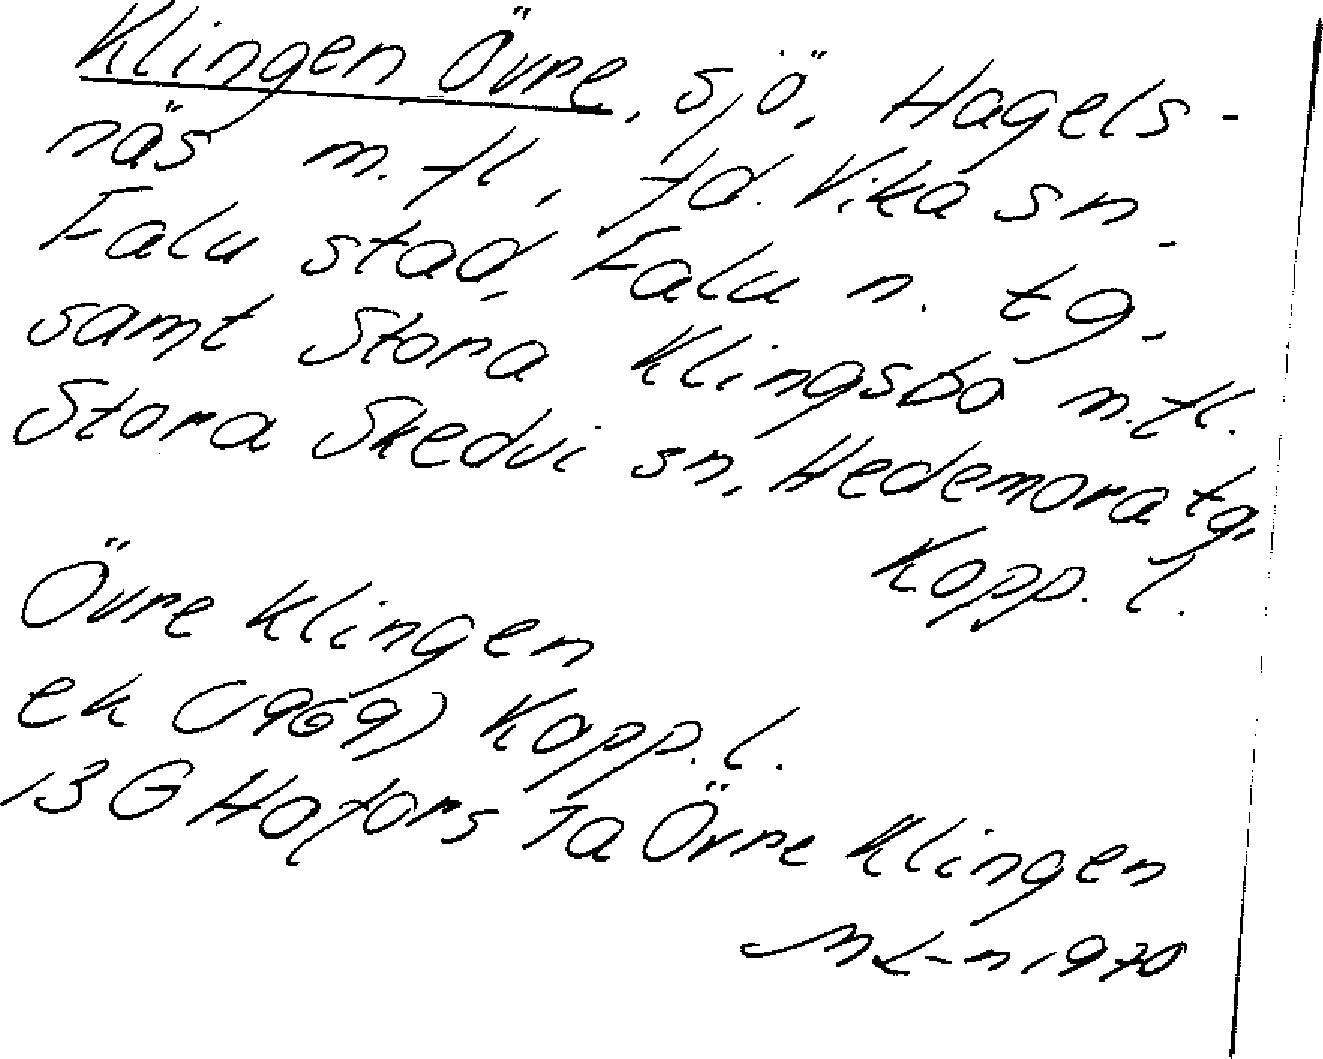 Klingen Övre, sjö, Hagels-
näs m.fl., fd. Vika sn.
Falu stad, Falu n. tg.
samt Stora Klingsbo m.fl.
Stora Skedvi sn, Hedemora tg,
Kopp. l.
Övre Klingen
ek (1969) Kopp. l.
13 G Hofors Ta Övre Klingen
ML-n 1970